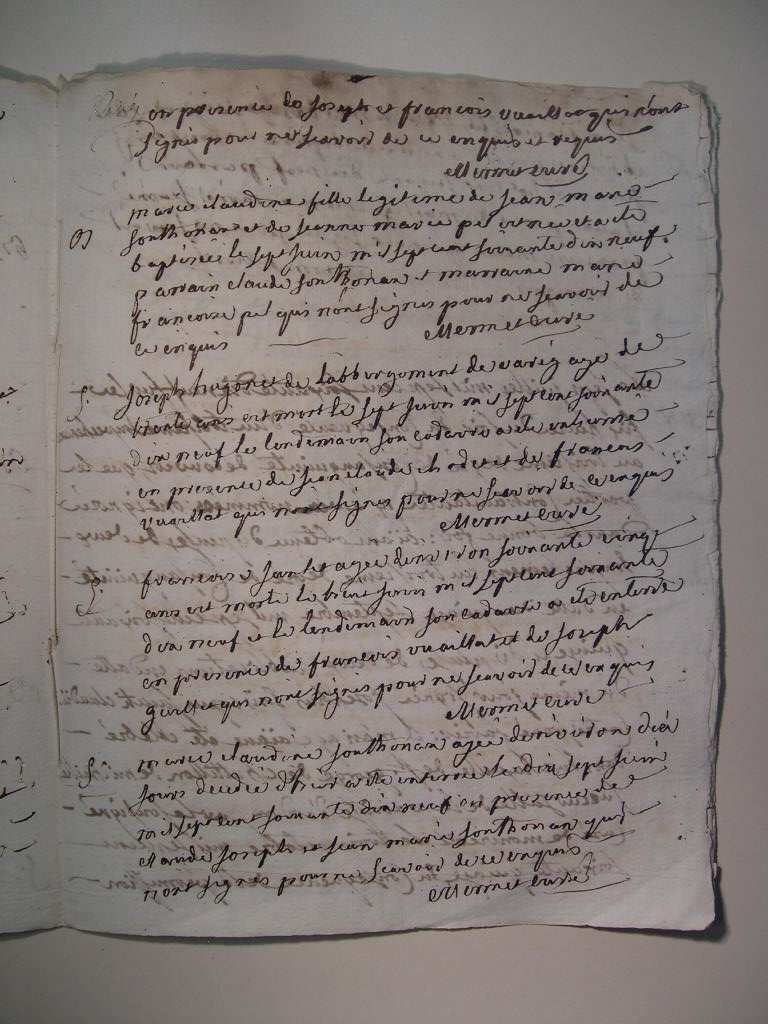 en presence de Joseph et francois vuaillat qui n'ont
signés pour ne scavoir de ce enquis et requis
Mermet curé
B marie claudine fille legitime de Jean marie
Sonthonax et de Jeanne marie pel est nee et a eté
baptisée le sept juin mil sept cent soixante dix neuf.
parrain claude Sonthonax et marraine marie
francoise pel qui n'ont signés pour ne scavoir de
ce enquis Mermet curé
S. Joseph hugonet de Labburgement de varey agé de
trente ans est mort le sept juin mil sept cent soixante
dix neuf le lendemain son cadavre a eté enterré
en presence de Jean claude chodet et de francois
vuaillat qui n'ont signés pour ne scavoir de ce enquis
Mermet curé
S. francoise Jantet agée denviron soixante vingt
ans est morte le huit juin mil sept cent soixante
dix neuf et le lendemain son cadavre a eté enterré
en presence de francois vuaillat et de Joseph
guillet qui n'ont signés pour ne scavoir de ce enquis
Mermet curé
S. marie claudine Sonthonax agée denviron dix
jours decedée d'hier a eté enterrée le dix sept juin
mil sept cent soixante dix neuf en presence de
claude Joseph et Jean marie Sonthonax qui
n'ont signés pour ne scavoir de ce enquis
Mermet curé